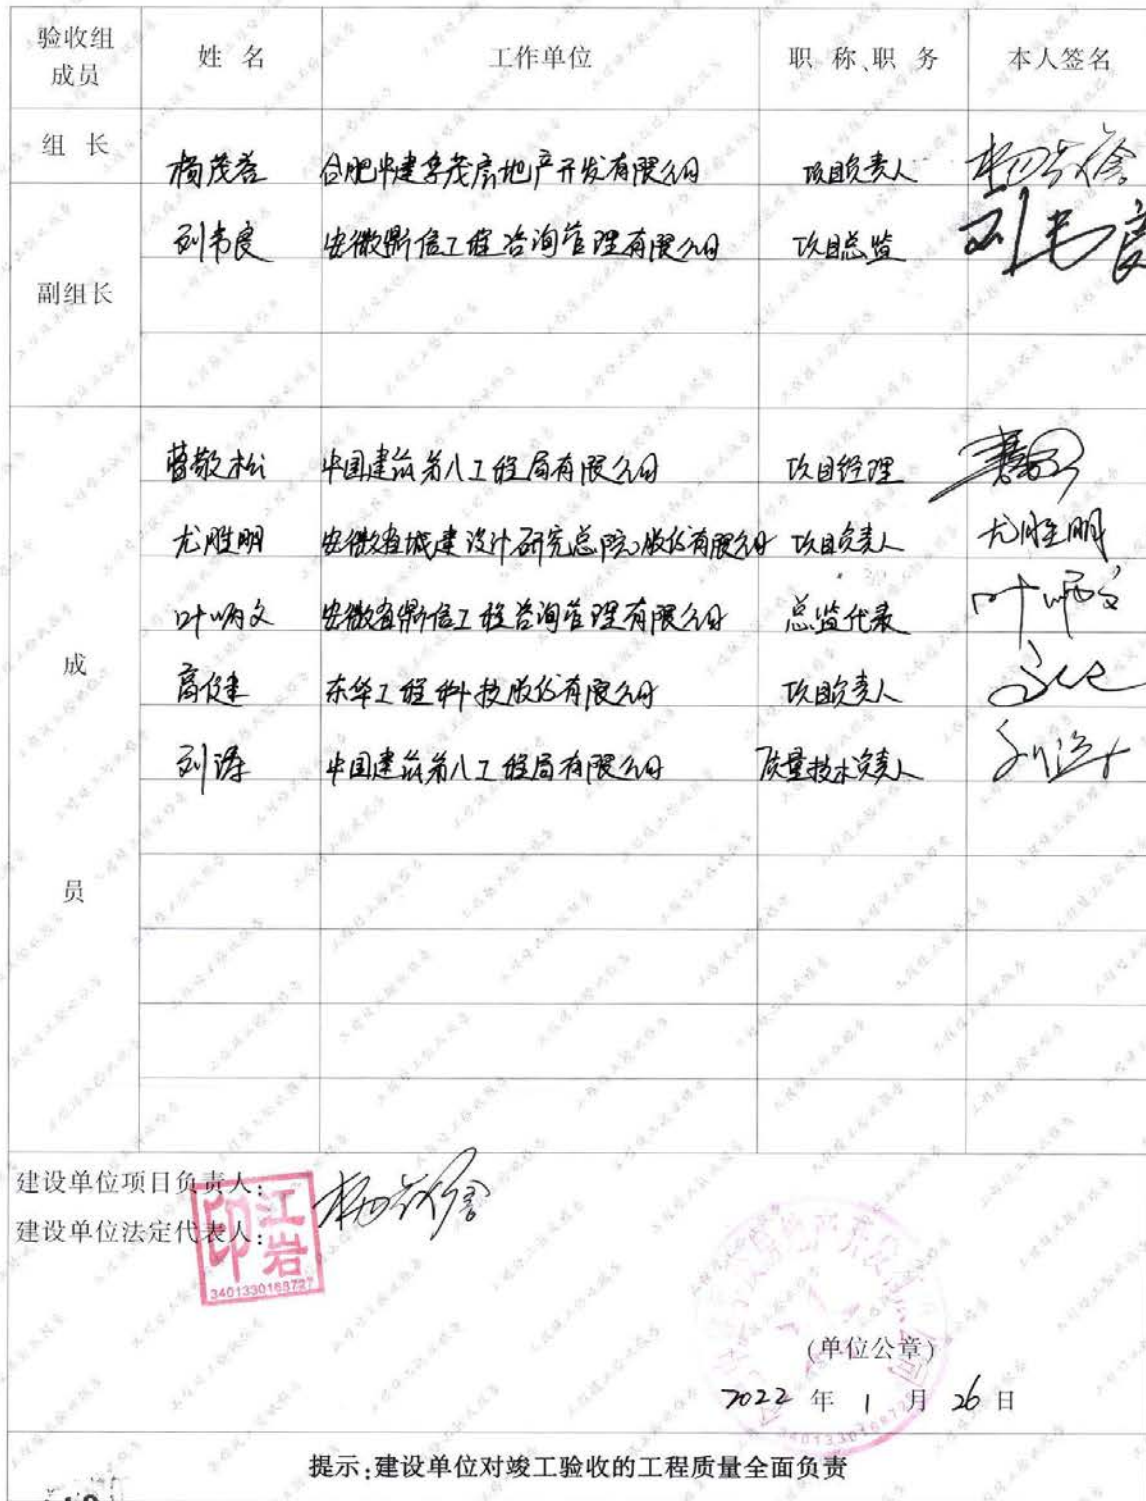 验收组成员 姓 名 工作单位 职 称、职 务 本人签名
组 长 杨茂 合肥中建孚茂房地产开发有限公司 项目负责人
副组长 刘韦良 安徽鼎信工程咨询管理有限公司 项目总监 刘韦良
成员
曹敬松 中国建筑第八工程局有限公司 项目经理
尤胜明 安徽省城建设计研究总院股份有限公司 项目负责人 尤胜明
叶炳文 安徽省鼎信工程咨询管理有限公司 总监代表 叶炳文
高健 东华工程科技股份有限公司 项目负责人
刘涛 中国建筑第八工程局有限公司 质量技术负责人 刘涛
建设单位项目负责人:
建设单位法定代表人:
江岩印
3401330168727
(单位公章)
2022 年 1 月 26 日
提示:建设单位对竣工验收的工程质量全面负责